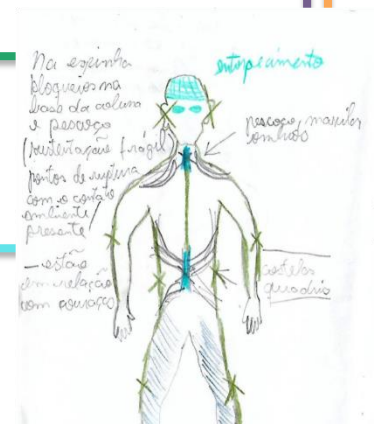 Na espinha
bloqueios na
base da coluna
e pescoço
(sustentação frágil
pontos de ruptura
com o contato
ambiente
presente)
— estão
em relação
com
entorpecimento
pescoço, maxilar
ombros
costelas
quadris